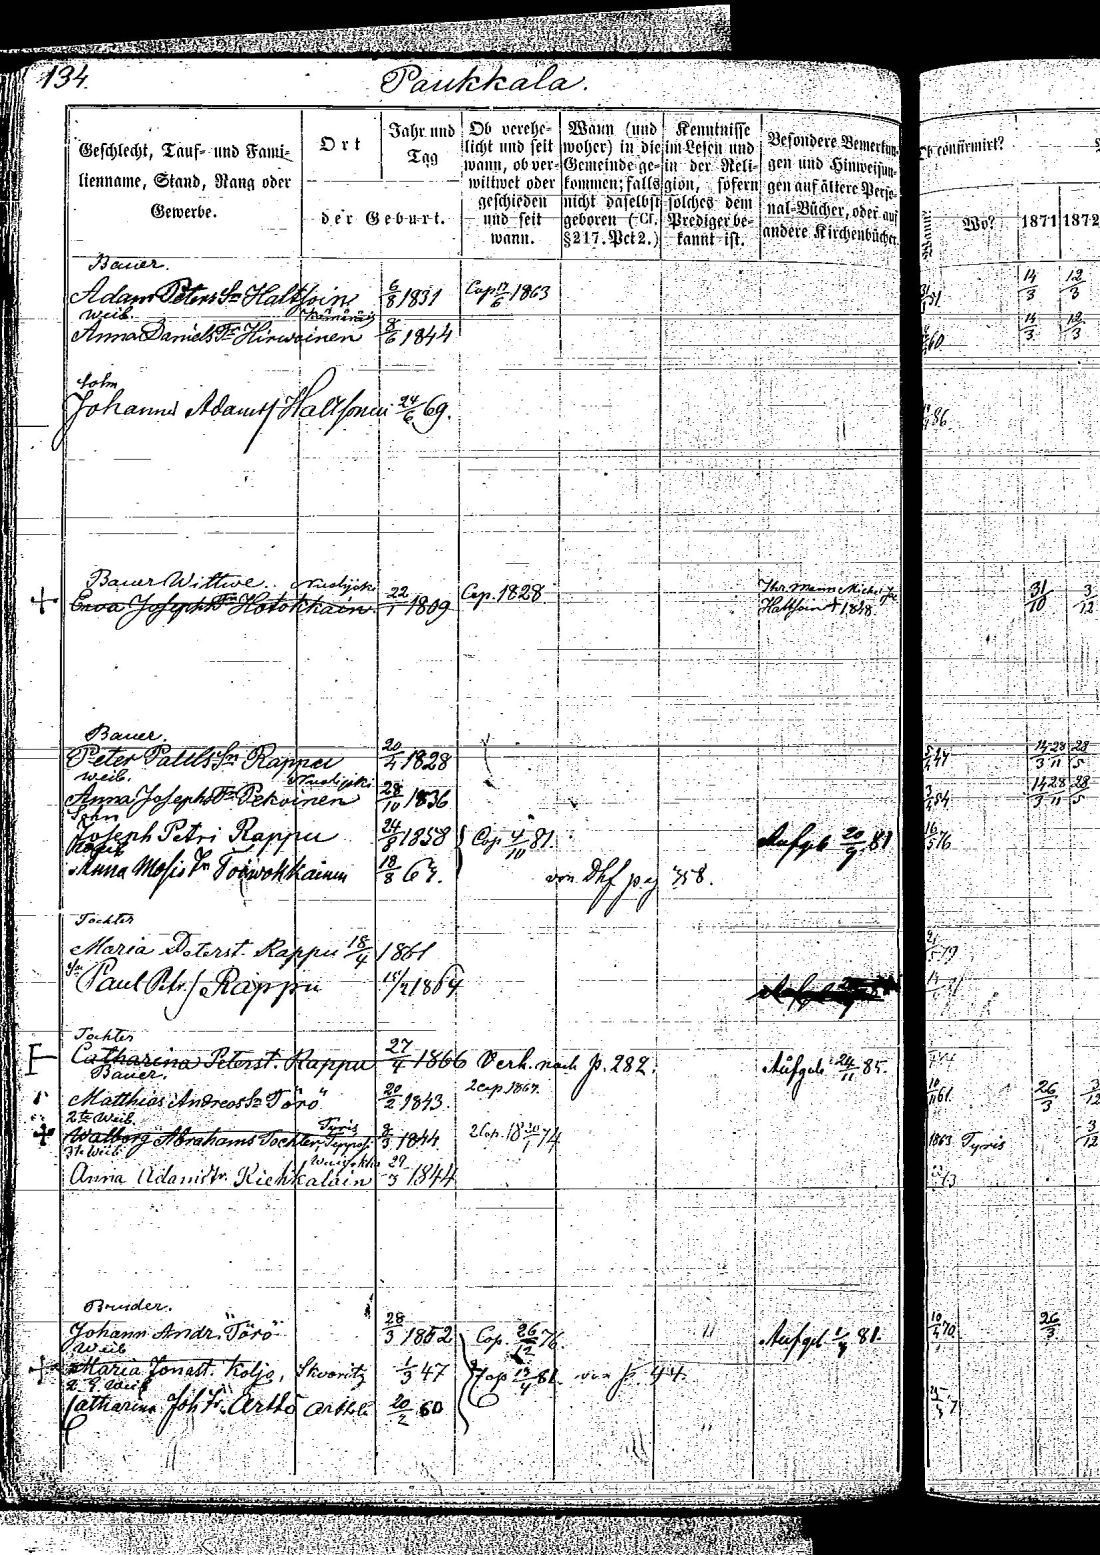 134.
Paukkala.
Geschlecht, Tauf- und Fami-
lienname, Stand, Rang oder
Gewerbe.
Ort
Jahr und
Tag
der Geburt.
Ob verehe-
licht und seit
wann, ob ver-
wittwet oder
geschieden
und seit
wann.
Wann (und
woher) in die
Gemeinde ge-
kommen; falls
nicht daselbst
geboren (Cf.
§ 217. Pct 2.)
Kenntnisse
im Lesen und
in der Reli-
gion, sofern
solches dem
Prediger be-
kannt ist.
Besondere Bemerkun-
gen und Hinweisun-
gen auf ältere Perso-
nal-Bücher, oder auf
andere Kirchenbücher.
Ob confirmirt?
Wann?
Wo?
1871
1872
Bauer.
Adam Peters Sn Haltsoine 6/8 1831 Cop 17/6 1863 14/3 12/3
Weib.
Anna Daniels Tr Hirwoinen 8/6 1844 14/3 12/3
Sohn
Johannes Adams Haltsonen 24/6 69. 86
Bauer Wittwe.
Ewa Josephs Tr Hotokkain 22/1 1809 Cop. 1828 Ihr Mann Michel
Haltsoin † 1848 31/10 3/12
Bauer.
Peter Pauls Sn Rappu 20/4 1828 47 14/3 28/11 28/5
Weib.
Anna Josephs Tr Pekoinen 28/10 1836 54 14/3 28/11 28/5
Sohn
Joseph Petri Rappu 24/8 1858 Cop 4/10 81. Aufgeb 20/9 81 76
Anna Mosis Tr Toiwokkainen 18/8 61. von Dhf pag 758.
Tochter
Maria Peterst. Rappu 18/4 1861
Paul Petr. Rappu 15/2 1864
Tochter
Catharina Peterst. Rappu 27/4 1866 Verh. nach p. 282. Aufgeb 24/11 85.
Bauer.
Matthias Andreas Sn Törö 20/2 1843. 2 Cop. 1867. 61 26/3 3/12
2te Weib. Tyris
Walborg Abrahams Tochter Teppo 8/3 1844 2 Cop. 18 20/1 74 1863 Tyris 3/12
3te Weib
Anna Adamstr. Kiehkalain 29/3 1844 73
Bruder.
Johann Andr. Törö 28/3 1852 Cop. 26/12 76. Aufgeb. 1/4 81. 70 26/3
Weib
Maria Jonast. Koljo, Skworitz 1/3 47 Cop 19/4 81. von p. 44.
2. Weib
Catharina Joh Tr. Arthö 20/2 60